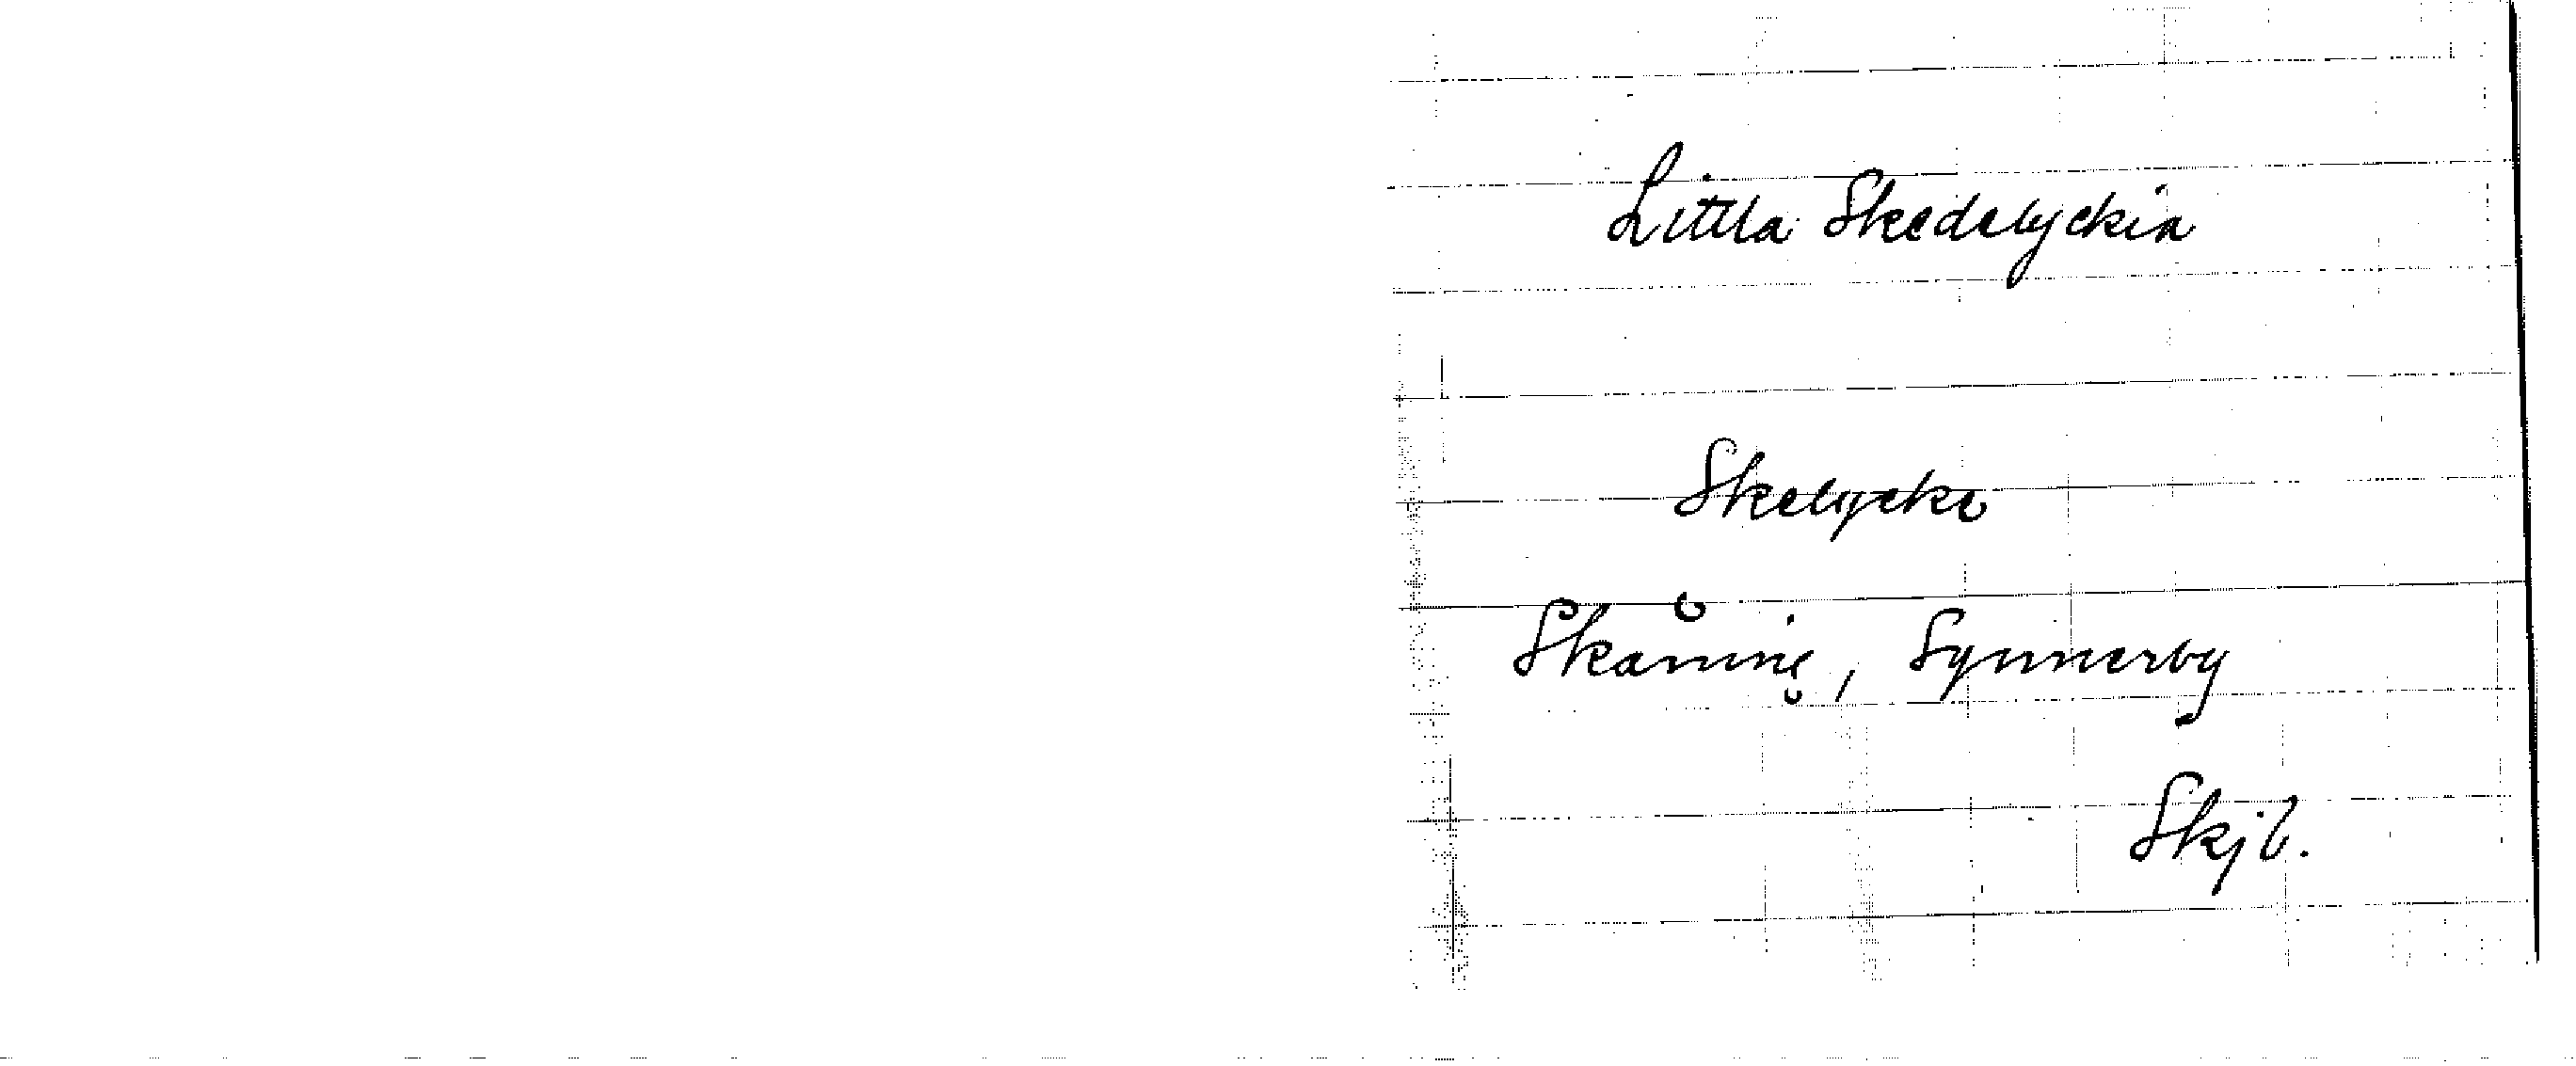 Littla Skedelyckia
Skelycke
Skåning, Synnerby
Skjb.